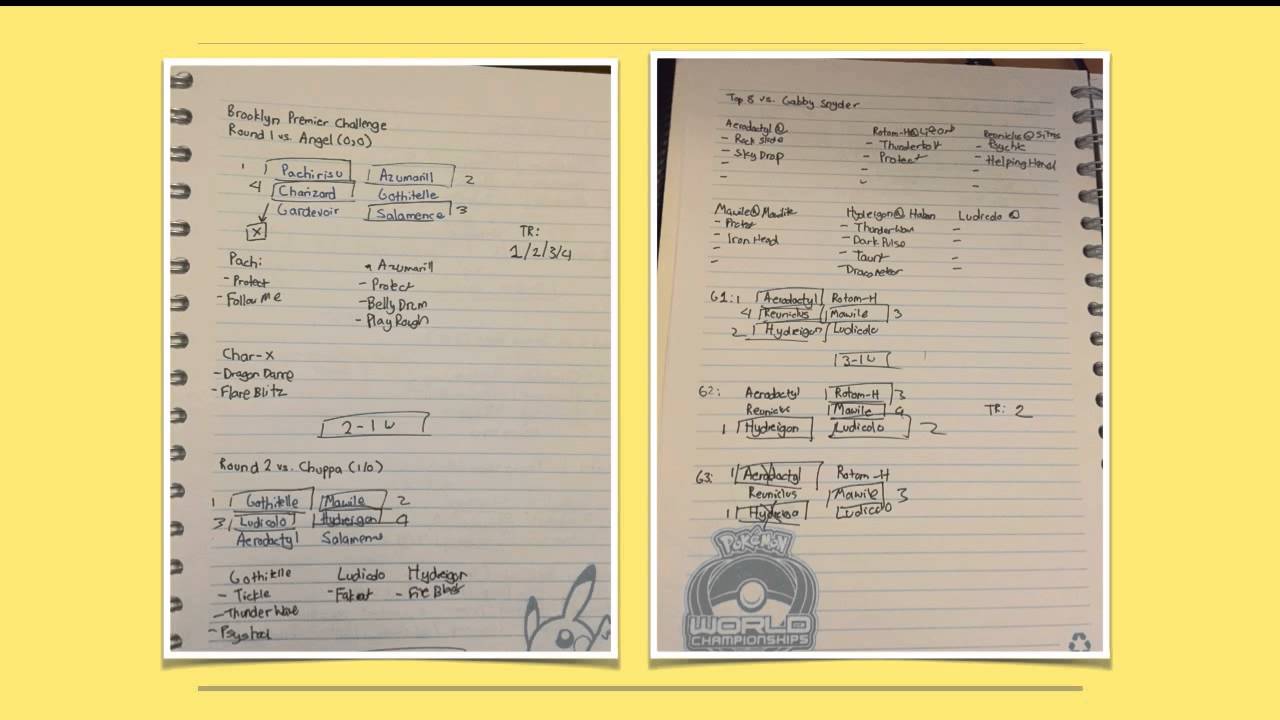 Brooklyn Premier Challenge
Round 1 vs. Angel (0,0)
1 Pachirisu Azumarill 2
4 Charizard Gothitelle
Gardevoir Salamence 3
X
TR:
1/2/3/4
Pachi:
- Protect
- Follow Me
Azumarill
- Protect
- Belly Drum
- Play Rough
Char-X
- Dragon Dance
- Flare Blitz
2-1 W
Round 2 vs. Chuppa (1/0)
1 Gothitelle Mawile 2
3 Ludicolo Hydreigon 4
Aerodactyl Salamence
Gothitelle Ludicolo Hydreigon
- Tickle - Fakeout - Fire Blast
- Thunder Wave
- Psyshock
Top 8 vs. Gabby Snyder
Aerodactyl @ Rotom-H @ Reuniclus @ Sitrus
- Rock Slide - Thunderbolt - Psychic
- Sky Drop - Protect - Helping Hand
- - -
- - -
Mawile @ Mawilite Hydreigon @ Haban Ludicolo @
- Protect - Thunder Wave -
- Iron Head - Dark Pulse -
- - Taunt -
- - Draco Meteor -
G1: 1 Aerodactyl Rotom-H
4 Reuniclus Mawile 3
2 Hydreigon Ludicolo
3-1 W
G2: Aerodactyl Rotom-H 3
Reuniclus Mawile 4
1 Hydreigon Ludicolo 2
TR: 2
G3: 1 Aerodactyl Rotom-H
Reuniclus Mawile 3
1 Ludicolo
POKéMON
WORLD
CHAMPIONSHIPS